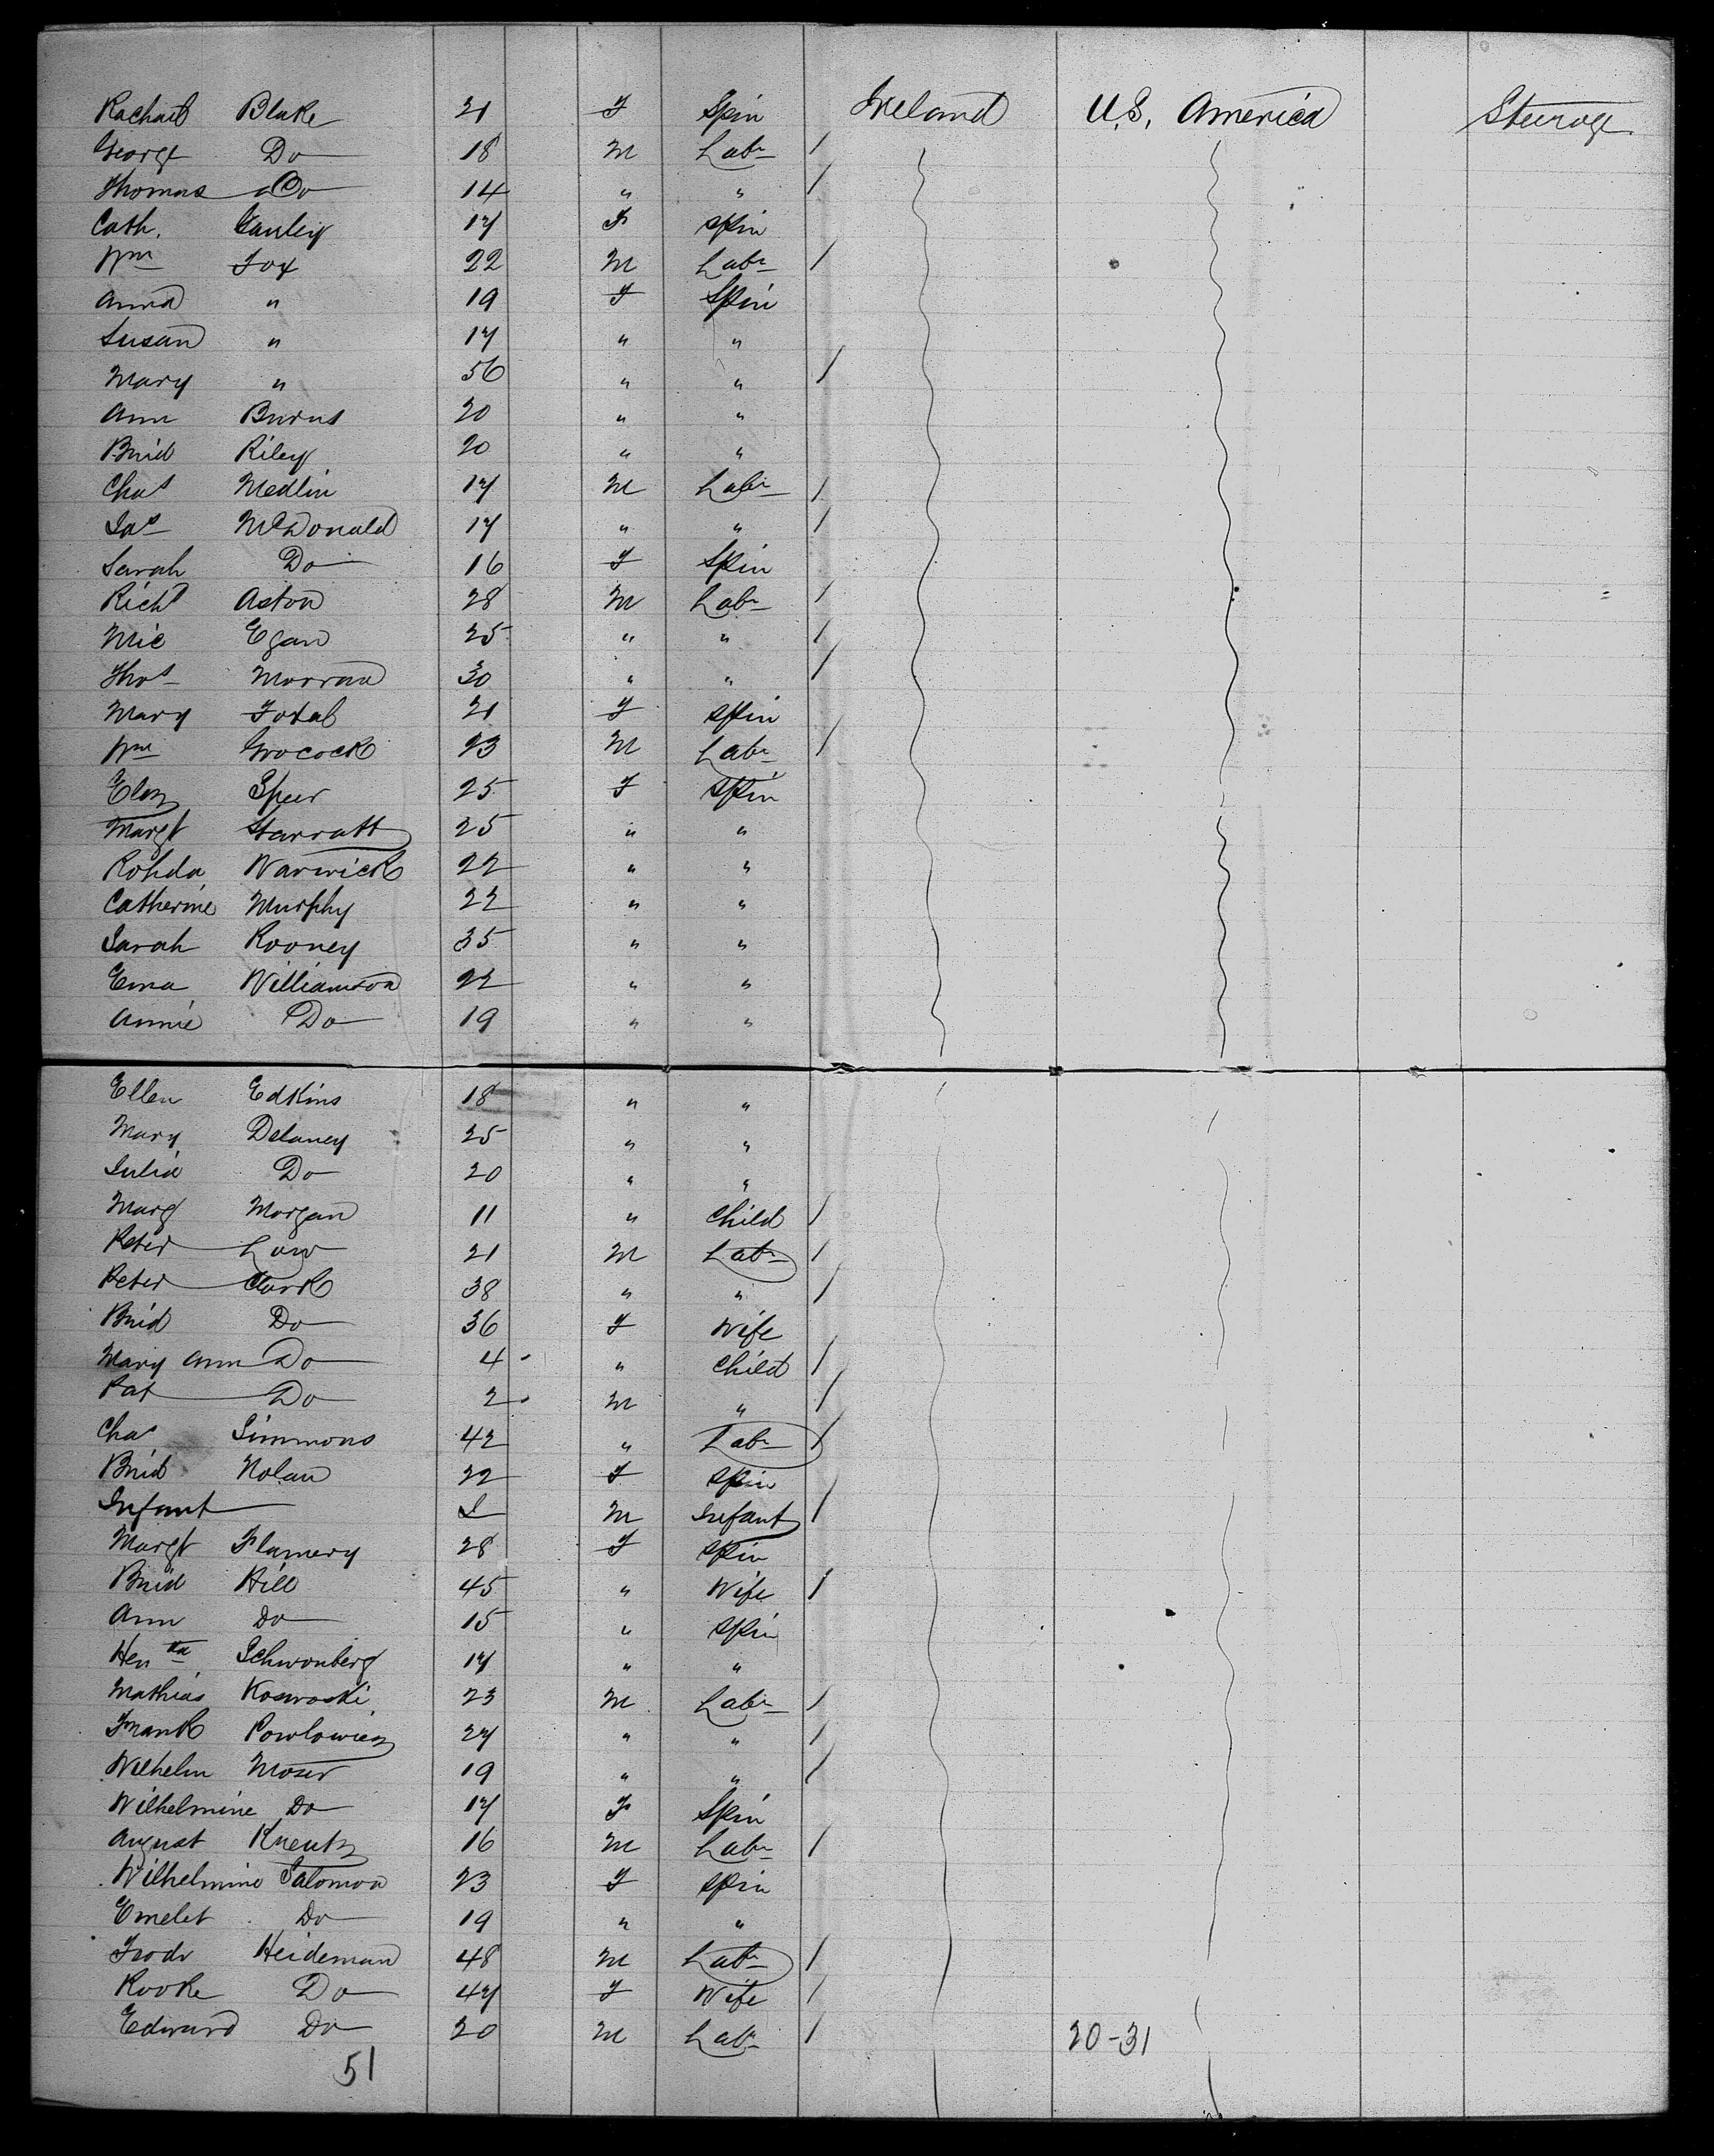 Rachael Blake 21 F Spin Ireland U.S. America Steerage
George Do 18 M Labr /
Thomas Do 14 " " /
Cath. Ganley 17 F Spin
Wm Fox 22 M Labr /
Anna " 19 F Spin
Susan " 17 " "
Mary " 56 " " /
Ann Burns 20 " "
Brid Riley 20 " "
Chas Medlin 17 M Labr /
Jas McDonald 17 " " /
Sarah Do 16 F Spin
Richd Aston 28 M Labr /
Mic Egan 25 " " /
Thos Morran 30 " " /
Mary Foxal 21 F Spin
Wm Grocock 23 M Labr /
Eliz Speer 25 F Spin
Margt Starratt 25 " "
Rohda Warwick 22 " "
Catherine Murphy 22 " "
Sarah Rooney 35 " "
Ema Williamson 22 " "
Annie Do 19 " "
Ellen Edkins 18 " "
Mary Delaney 25 " "
Julia Do 20 " "
Marg Morgan 11 " Child /
Peter Law 21 M Labr /
Peter Clark 38 " " /
Brid Do 36 F Wife
Mary Ann Do 4 " Child /
Pat Do 2 M " /
Chas Simmons 42 " Labr /
Brid Nolan 22 F Spin
Infant I M Infant /
Margt Flamery 28 F Spin
Brid Hill 45 " Wife /
Ann Do 15 " Spin
Hen ta Schwonberg 17 " "
Mathias Koswoski 23 M Labr /
Frank Powlowicz 27 " " /
Wilhelm Moser 19 " " /
Wilhelmine Do 17 F Spin
August Kreutz 16 M Labr /
Wilhelmine Salomon 23 F Spin
Emelet Do 19 " "
Frodr Heideman 48 M Labr /
Rooke Do 47 F Wife /
Edward Do 20 M Labr / 20-31
51